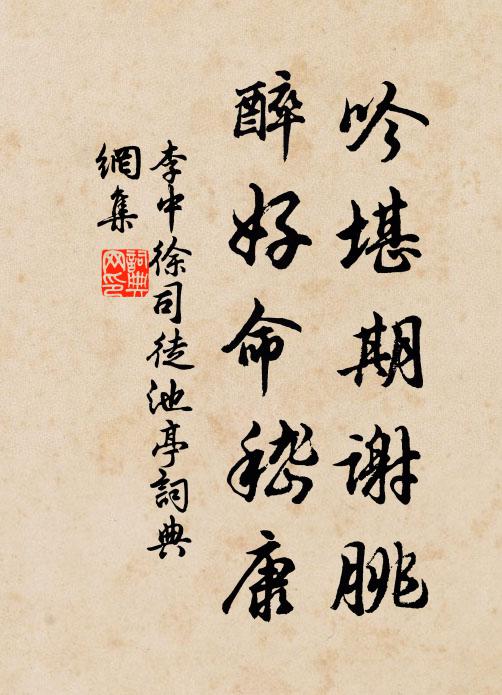 吟堪期謝朓
醉好命嵇康
李中徐司徒池亭詞典
網集
詞典
网印